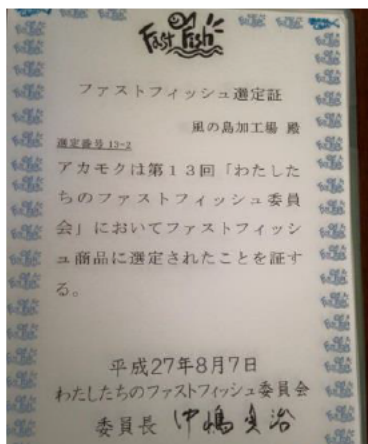 Fast Fish
ファストフィッシュ選定証
風の島加工場 殿
選定番号 13-2
アカモクは第13回「わたした
ちのファストフィッシュ委員
会」においてファストフィッシ
ュ商品に選定されたことを証す
る。
平成27年8月7日
わたしたちのファストフィッシュ委員会
委員長 中嶋